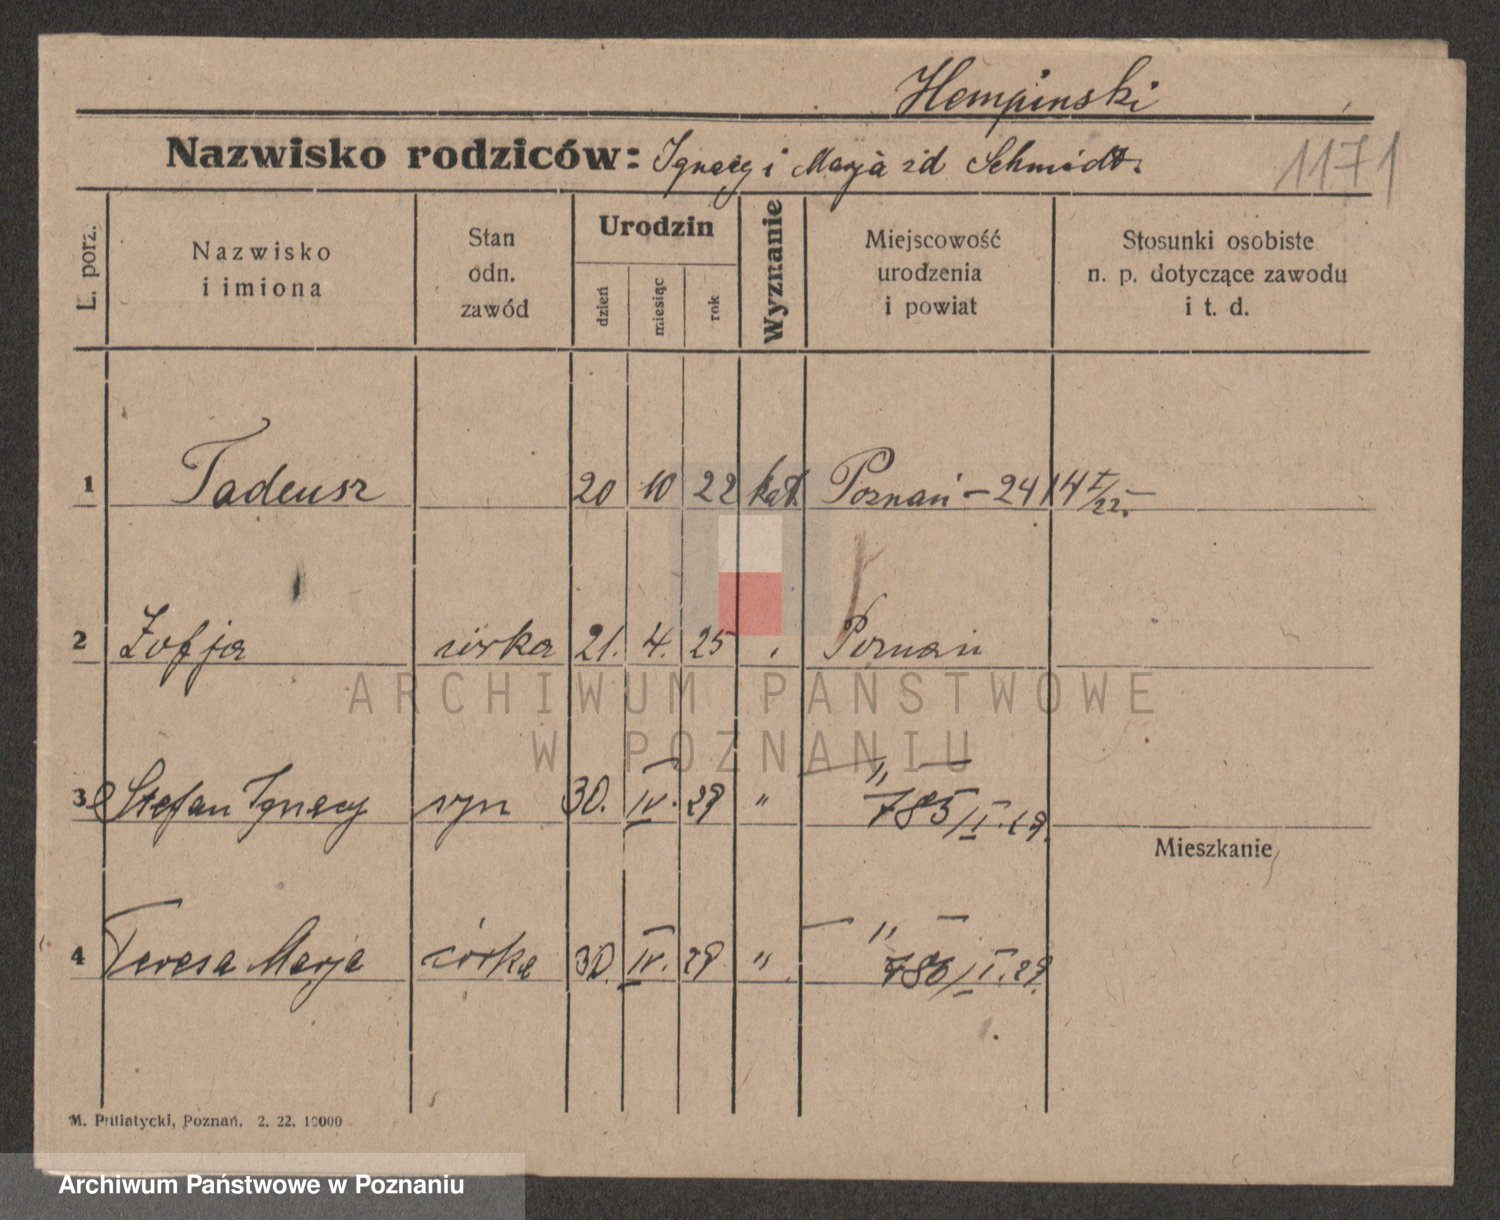 Hempinski
Nazwisko rodziców: Ignacy i Marja zd Schmidt.
1171
L. porz.
Nazwisko
i imiona
Stan
odn.
zawód
Urodzin
dzień
miesiąc
rok
Wyznanie
Miejscowość
urodzenia
i powiat
Stosunki osobiste
n. p. dotyczące zawodu
i t. d.
1 Tadeusz 20 10 22 kat Poznań – 2414 I/22.
2 Zofja córka 21. 4. 25 Poznań
ARCHIWUM PAŃSTWOWE
W POZNANIU
3 Stefan Ignacy syn 30. IV. 29 " — " —
785/II.29.
Mieszkanie
4 Teresa Marja córka 30. IV. 29 " — " —
786/II.29.
M. Putiatycki, Poznań. 2. 22. 10000
Archiwum Państwowe w Poznaniu